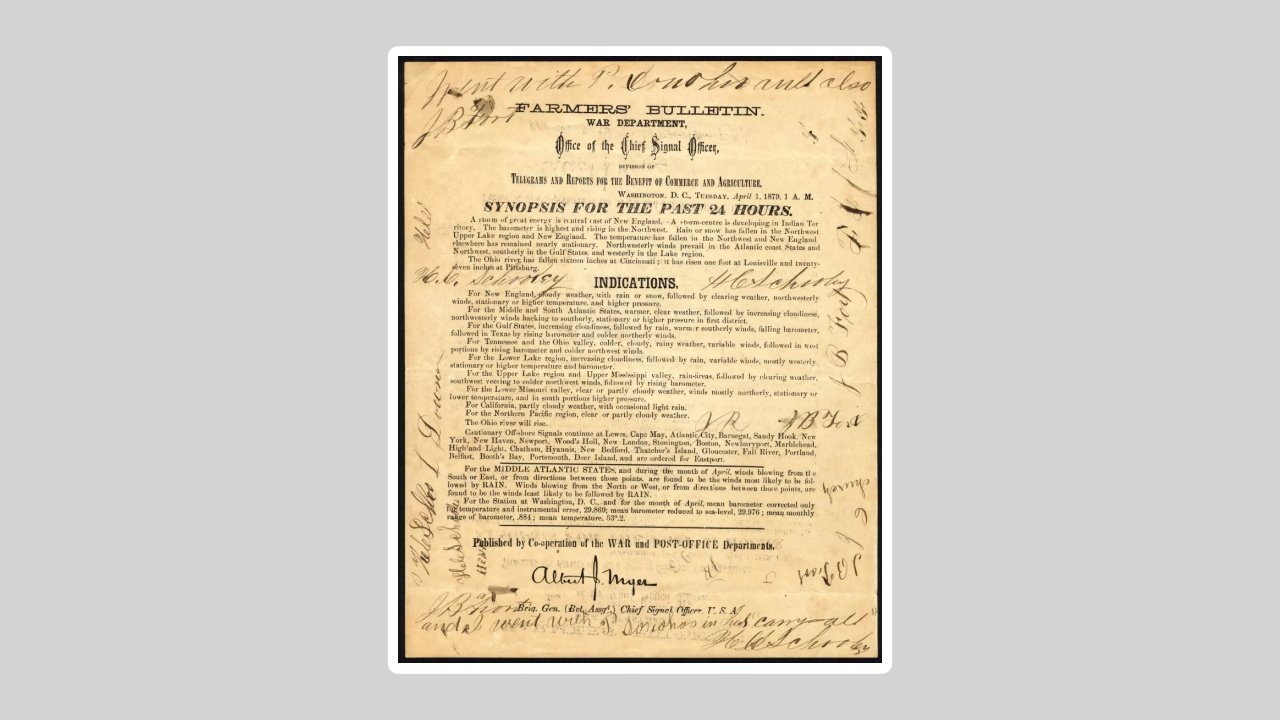 went with P. Donohos and also
J B Fort
FARMERS' BULLETIN.
WAR DEPARTMENT,
Office of the Chief Signal Officer,
DIVISION OF
TELEGRAMS AND REPORTS FOR THE BENEFIT OF COMMERCE AND AGRICULTURE.
WASHINGTON, D. C., TUESDAY, April 1, 1879, 1 A. M.
SYNOPSIS FOR THE PAST 24 HOURS.
A storm of great energy is central east of New England. A storm-centre is developing in Indian Ter
ritory. The barometer is highest and rising in the Northwest. Rain or snow has fallen in the Northwest
Upper Lake region and New England. The temperature has fallen in the Northwest and New England
elsewhere has remained nearly stationary. Northwesterly winds prevail in the Atlantic coast States and
Northwest, southerly in the Gulf States, and westerly in the Lake region.
The Ohio river has fallen sixteen inches at Cincinnati; it has risen one foot at Louisville and twenty-
seven inches at Pittsburg.
H. C. Schooley
INDICATIONS.
H C Schooley
For New England, cloudy weather, with rain or snow, followed by clearing weather, northwesterly
winds, stationary or higher temperature, and higher pressure.
For the Middle and South Atlantic States, warmer, clear weather, followed by increasing cloudiness,
northwesterly winds backing to southerly, stationary or higher pressure in first district.
For the Gulf States, increasing cloudiness, followed by rain, warmer southerly winds, falling barometer,
followed in Texas by rising barometer and colder northerly winds.
For Tennessee and the Ohio valley, colder, cloudy, rainy weather, variable winds, followed in west
portions by rising barometer and colder northwest winds.
For the Lower Lake region, increasing cloudiness, followed by rain, variable winds, mostly westerly,
stationary or higher temperature and barometer.
For the Upper Lake region and Upper Mississippi valley, rain-areas, followed by clearing weather,
southwest veering to colder northwest winds, followed by rising barometer.
For the Lower Missouri valley, clear or partly cloudy weather, winds mostly northerly, stationary or
lower temperature, and in south portions higher pressure.
For California, partly cloudy weather, with occasional light rain.
For the Northern Pacific region, clear or partly cloudy weather.
The Ohio river will rise.
J B Fort
Cautionary Off-shore Signals continue at Lewes, Cape May, Atlantic City, Barnegat, Sandy Hook, New
York, New Haven, Newport, Wood's Holl, New London, Stonington, Boston, Newburyport, Marblehead,
Highland Light, Chatham, Hyannis, New Bedford, Thatcher's Island, Gloucester, Fall River, Portland,
Belfast, Booth's Bay, Portsmouth, Deer Island, and are ordered for Eastport.
For the MIDDLE ATLANTIC STATES, and during the month of April, winds blowing from the
South or East, or from directions between those points, are found to be the winds most likely to be fol-
lowed by RAIN. Winds blowing from the North or West, or from directions between those points, are
found to be the winds least likely to be followed by RAIN.
For the Station at Washington, D. C., and for the month of April, mean barometer corrected only
for temperature and instrumental error, 29.869; mean barometer reduced to sea-level, 29.976; mean monthly
range of barometer, .884; mean temperature, 53°.2.
Published by Co-operation of the WAR and POST-OFFICE Departments.
Albert J. Myer
Brig. Gen. (Bvt. Assg'.) Chief Signal Officer, U. S. A.
J B Fort
and I went with P Donohos in his carry-all
H C Schooley
church
J B Fort